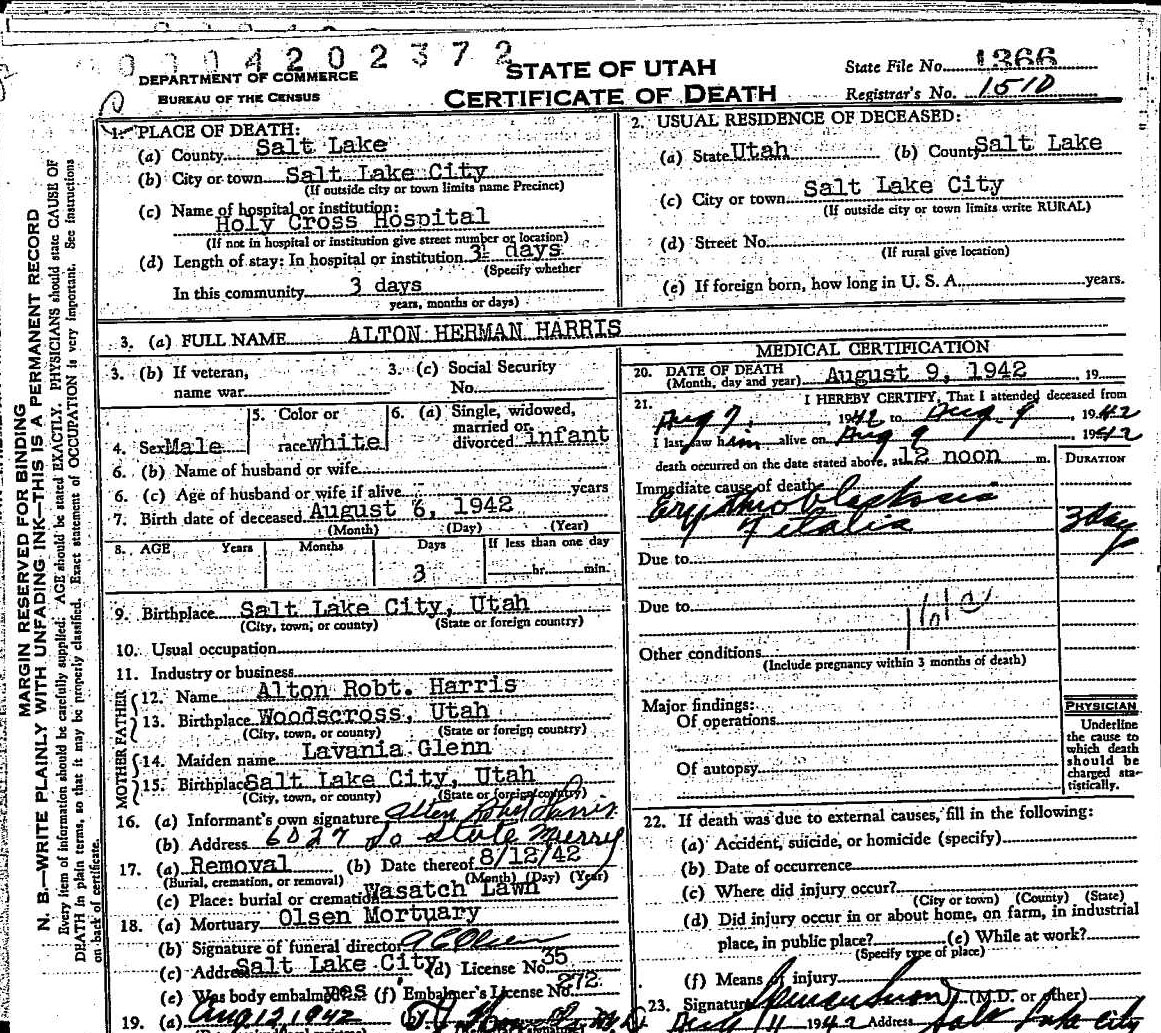 0004202372
DEPARTMENT OF COMMERCE
BUREAU OF THE CENSUS
STATE OF UTAH
CERTIFICATE OF DEATH
State File No. 1366
Registrar's No. 1510
MARGIN RESERVED FOR BINDING
N. B.—WRITE PLAINLY WITH UNFADING INK—THIS IS A PERMANENT RECORD
Every item of information should be carefully supplied. AGE should be stated EXACTLY. PHYSICIANS should state CAUSE OF
DEATH in plain terms, so that it may be properly classified. Exact statement of OCCUPATION is very important. See instructions
on back of certificate.
1. PLACE OF DEATH:
(a) County Salt Lake
(b) City or town Salt Lake City
(If outside city or town limits name Precinct)
(c) Name of hospital or institution:
Holy Cross Hospital
(If not in hospital or institution give street number or location)
(d) Length of stay: In hospital or institution 3 days
(Specify whether
In this community 3 days
years, months or days)
2. USUAL RESIDENCE OF DECEASED:
(a) State Utah (b) County Salt Lake
(c) City or town Salt Lake City
(If outside city or town limits write RURAL)
(d) Street No.
(If rural give location)
(e) If foreign born, how long in U. S. A. years.
3. (a) FULL NAME ALTON HERMAN HARRIS
3. (b) If veteran, name war
3. (c) Social Security No.
4. Sex Male
5. Color or race white
6. (a) Single, widowed, married or divorced infant
6. (b) Name of husband or wife
6. (c) Age of husband or wife if alive years
7. Birth date of deceased August 6, 1942
(Month) (Day) (Year)
8. AGE Years Months Days If less than one day
3 hr. min.
9. Birthplace Salt Lake City, Utah
(City, town, or county) (State or foreign country)
10. Usual occupation
11. Industry or business
FATHER
12. Name Alton Robt. Harris
13. Birthplace Woodscross, Utah
(City, town, or county) (State or foreign country)
MOTHER
14. Maiden name Lavania Glenn
15. Birthplace Salt Lake City, Utah
(City, town, or county) (State or foreign country)
16. (a) Informant's own signature Alton Robt Harris
(b) Address 6027 So State Murry
17. (a) Removal (b) Date thereof 8/12/42
(Burial, cremation, or removal) (Month) (Day) (Year)
(c) Place: burial or cremation Wasatch Lawn
18. (a) Mortuary Olsen Mortuary
(b) Signature of funeral director
(c) Address Salt Lake City (d) License No. 35
(e) Was body embalmed yes (f) Embalmer's License No. 272
19. (a) Aug 12, 1942
MEDICAL CERTIFICATION
20. DATE OF DEATH
(Month, day and year) August 9, 1942, 19
21. I HEREBY CERTIFY, That I attended deceased from
Aug 7, 1942 to Aug. 9, 1942
I last saw him alive on Aug 9, 1942
death occurred on the date stated above, at 12 noon m.
DURATION
Immediate cause of death
Erythroblastosis
Fetalis 3 days
Due to
Due to
161a
Other conditions
(Include pregnancy within 3 months of death)
Major findings:
Of operations
Of autopsy
PHYSICIAN
Underline
the cause to
which death
should be
charged sta-
tistically.
22. If death was due to external causes, fill in the following:
(a) Accident, suicide, or homicide (specify)
(b) Date of occurrence
(c) Where did injury occur?
(City or town) (County) (State)
(d) Did injury occur in or about home, on farm, in industrial
place, in public place? (e) While at work?
(Specify type of place)
(f) Means of injury
23. Signature (M.D. or other)
Aug 11 1942 Address Salt Lake City